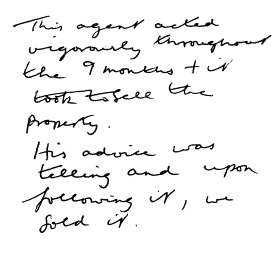 This agent acted
vigorously throughout
the 9 months + it
took to sell the
property.
His advice was
telling and upon
following it, we
sold it.